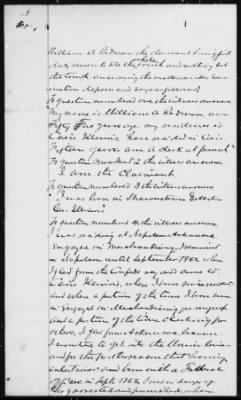 William A Redman the claimant being first
duly sworn to tell the whole truth and nothing but
the truth, concerning the matters under exam-
ination deposes and says as follows
To question numbered one the witness answers
"My name is William A Redman, am
Fifty five years of age my residence is
Cairo Illinois, have resided in Cairo
Fifteen years. am a clerk at present"
To question number 2 the witness answers
I am the Claimant
To question numbered 3 the witness answers
I was born in Shawneetown Gallatin
Co. Illinois
To question numbered 4 the witness answers
I was residing at Napoleon Arkansas
engaged in Merchandising, I remained
in Napoleon until September 1862 when
I fled from the confederacy and came to
Cairo Illinois, where I have since resided
and where a portion of the time I have been
engaged in Merchandising for myself
and a portion of the time clerking for
others, I left from Arkansas because
I wanted to get into the Union lines
and for the further reason that having
entertained and been with a Federal
Officer in Sept 1862 I was in danger of
being arrested and punished when